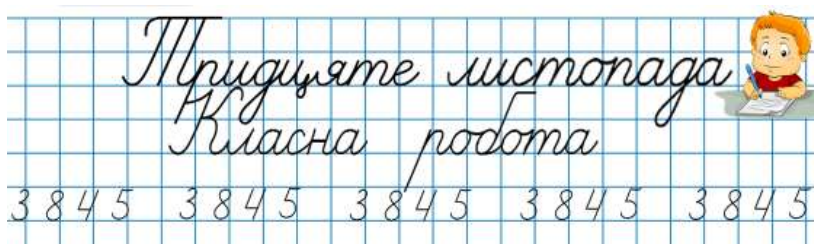 Тридцяте листопада
Класна робота
3 8 4 5 3 8 4 5 3 8 4 5 3 8 4 5 3 8 4 5